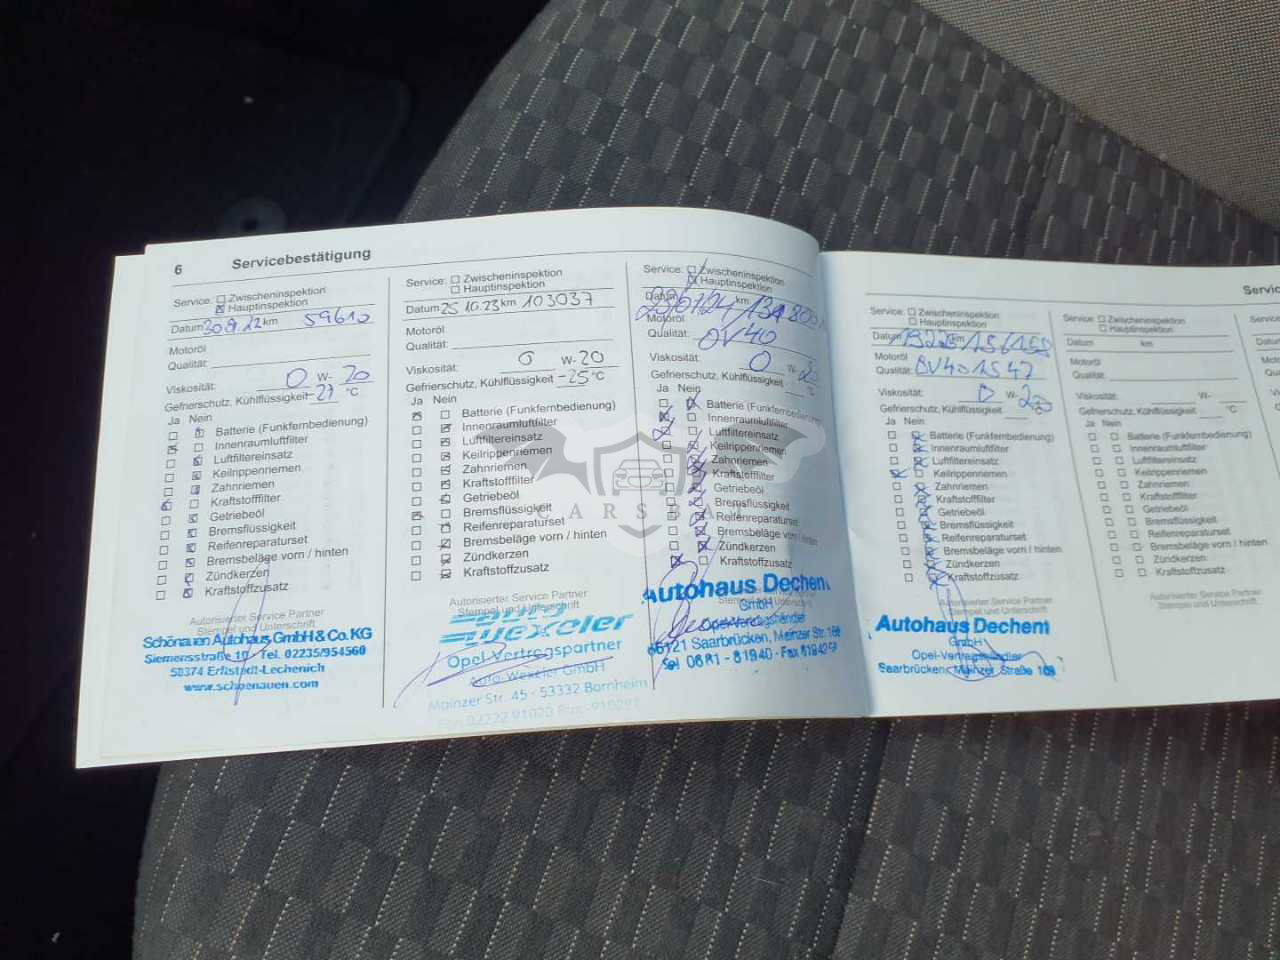 6 Servicebestätigung
Service: Zwischeninspektion
Hauptinspektion
Datum 30.9.22 km 59610
Motoröl
Qualität:
Viskosität: 0 W- 20
Gefrierschutz, Kühlflüssigkeit -27 °C
Ja Nein
Batterie (Funkfernbedienung)
Innenraumluftfilter
Luftfiltereinsatz
Keilrippenriemen
Zahnriemen
Kraftstofffilter
Getriebeöl
Bremsflüssigkeit
Reifenreparaturset
Bremsbeläge vorn / hinten
Zündkerzen
Kraftstoffzusatz
Autorisierter Service Partner
Stempel und Unterschrift
Schönauen Autohaus GmbH & Co. KG
Siemensstraße 10 · Tel. 02235/954560
50374 Erftstadt-Lechenich
www.schoenauen.com
Service: Zwischeninspektion
Hauptinspektion
Datum 25.10.23 km 103037
Motoröl
Qualität:
Viskosität: 0 W- 20
Gefrierschutz, Kühlflüssigkeit -25 °C
Ja Nein
Batterie (Funkfernbedienung)
Innenraumluftfilter
Luftfiltereinsatz
Keilrippenriemen
Zahnriemen
Kraftstofffilter
Getriebeöl
Bremsflüssigkeit
Reifenreparaturset
Bremsbeläge vorn / hinten
Zündkerzen
Kraftstoffzusatz
Autorisierter Service Partner
Stempel und Unterschrift
auto
wexeler
Opel-Vertragspartner
Auto-Wexeler GmbH
Mainzer Str. 45 - 53332 Bornheim
Service: Zwischeninspektion
Hauptinspektion
Datum km
Motoröl
Qualität: OV40
Viskosität: 0 W- 20
Gefrierschutz, Kühlflüssigkeit °C
Ja Nein
Batterie (Funkfernbedienung)
Innenraumluftfilter
Luftfiltereinsatz
Keilrippenriemen
Zahnriemen
Kraftstofffilter
Getriebeöl
Bremsflüssigkeit
Reifenreparaturset
Bremsbeläge vorn / hinten
Zündkerzen
Kraftstoffzusatz
Autohaus Dechent
GmbH
Opel-Vertragshändler
66121 Saarbrücken, Mainzer Str. 168
Tel 0681 - 81940 · Fax
Servic
Service: Zwischeninspektion
Hauptinspektion
Datum km
Motoröl
Qualität:
Viskosität: 0 W-
Gefrierschutz, Kühlflüssigkeit
Ja Nein
Batterie (Funkfernbedienung)
Innenraumluftfilter
Luftfiltereinsatz
Keilrippenriemen
Zahnriemen
Kraftstofffilter
Getriebeöl
Bremsflüssigkeit
Reifenreparaturset
Bremsbeläge vorn / hinten
Zündkerzen
Kraftstoffzusatz
Autorisierter Service Partner
Stempel und Unterschrift
Autohaus Dechent
GmbH
Opel-Vertragshändler
Saarbrücken, Mainzer Straße 168
Service: Zwischeninspektion
Hauptinspektion
Datum km
Motoröl
Qualität:
Viskosität: W-
Gefrierschutz, Kühlflüssigkeit °C
Ja Nein
Batterie (Funkfernbedienung)
Innenraumluftfilter
Luftfiltereinsatz
Keilrippenriemen
Zahnriemen
Kraftstofffilter
Getriebeöl
Bremsflüssigkeit
Reifenreparaturset
Bremsbeläge vorn / hinten
Zündkerzen
Kraftstoffzusatz
Autorisierter Service Partner
Stempel und Unterschrift
CARSBAT